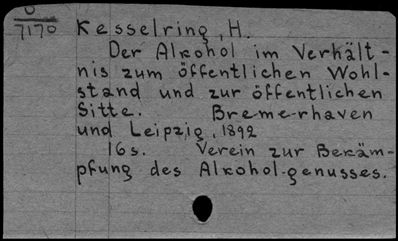 7170
Kesselring, H.
Der Alkohol im Verhält-
nis zum öffentlichen Wohl-
stand und zur öffentlichen
Sitte. Bremerhaven
und Leipzig, 1892
16s. Verein zur Bekäm-
pfung des Alkohol-genusses.